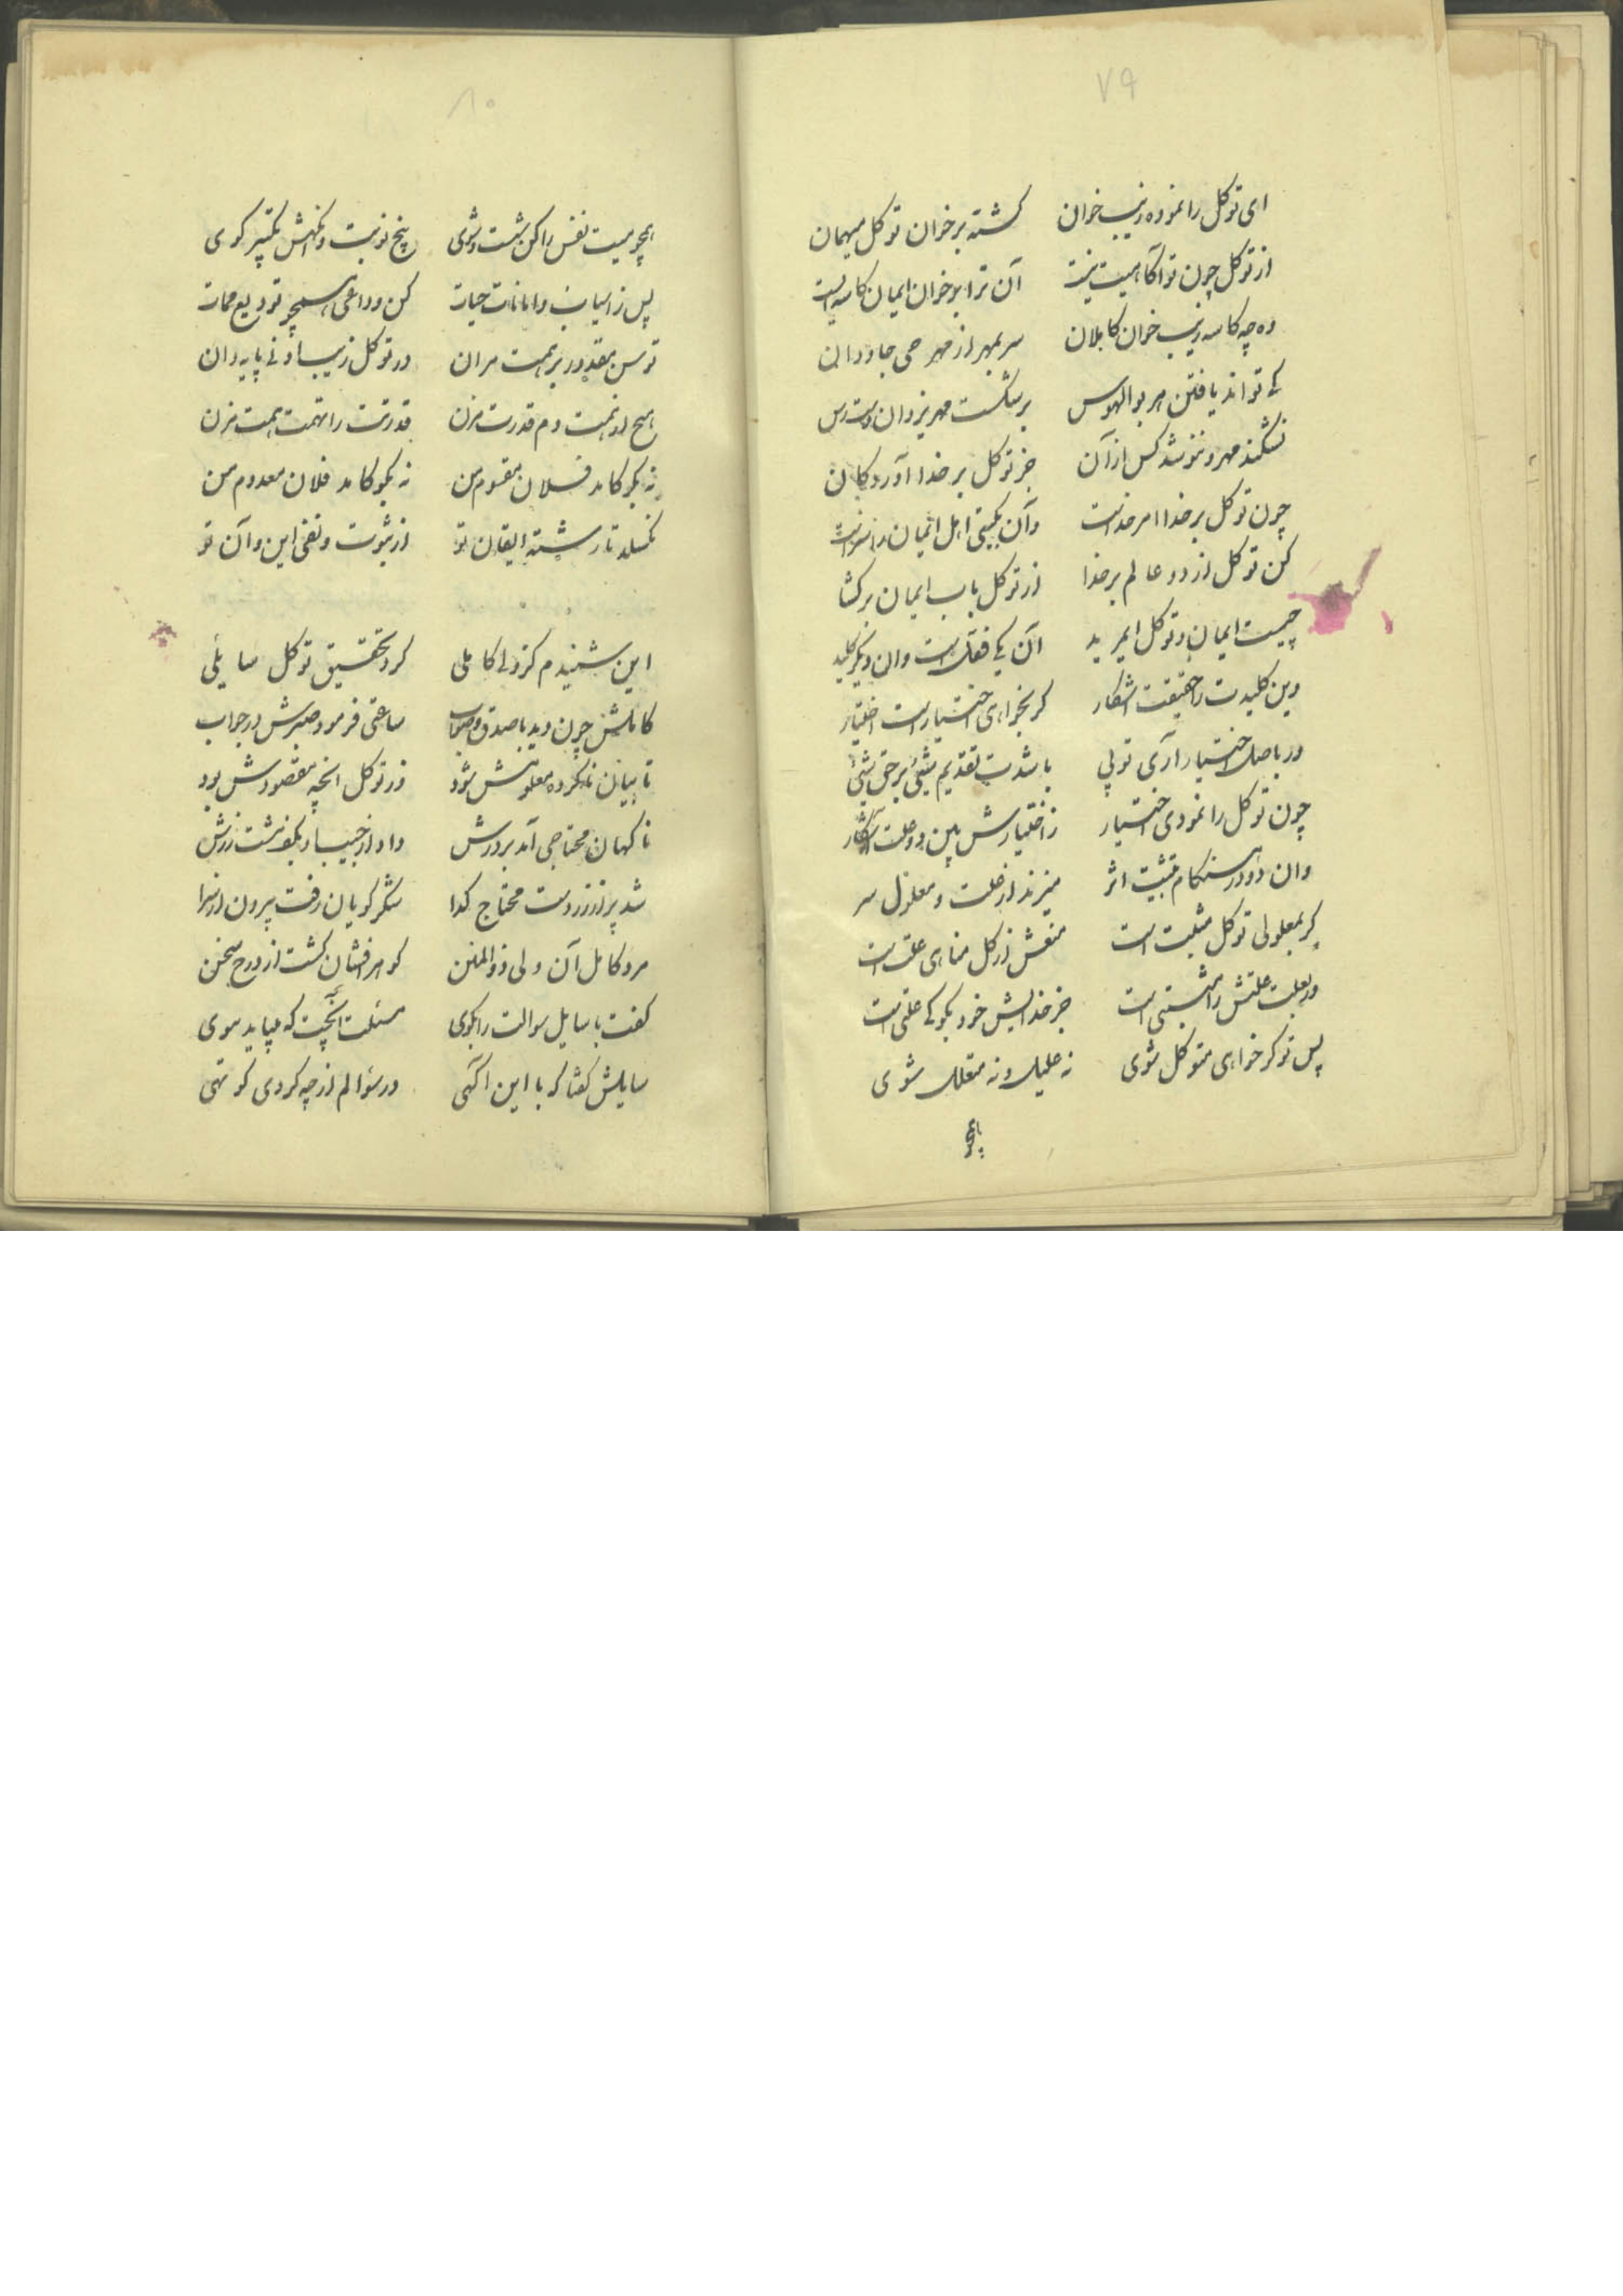 ۷۹
ای توکل را نموده زیب خوان گشته بر خوان توکل میهمان
از توکل چون تو آگاهیت نیست آن ترا بر خوان ایمان کاسه ایست
وه چه کاسه زیب خوان کابلان سر بمهر از مهر حی جاودان
کی تواند یافتن هر بوالهوس بر شکست مهر یزدان دسترس
نشکند مهر و ننوشد کس از آن جز توکل بر خدا آوردکان
چون توکل بر خدا امر خداست وآن بگیتی اهل ایمان را سزاست
کن توکل از دو عالم بر خدا از توکل باب ایمان برکشا
چیست ایمان و توکل ایمرید آن یکی قفل است وان دیگر کلید
وین کلیدت را حقیقت اشکار گر بخواهی اختیار است اختیار
ور باصل اختیار آری تو پی باشدت تقدیم شیئ بر حق شیئ
چون توکل را نمودی اختیار ز اختیارش بین دو علت آشکار
وان دو در هنگام تثبیت اثر میزند از علت و معلول سر
گر بمعلولی توکل مثبت است منعش از کل مناهی علت است
ور بعلت علتش را مثبتی است جز خدایش خود بگو کی علتی است
پس تو گر خواهی متوکل شوی نه علیل و نه متعلل شوی
همچو
۸۰
همچو میت نفس را کن شست و شوی پنج نوبت و نگهش تکبیر گوی
پس ز اسباب و امانات حیات کن وداعی همچو تودیع ممات
توسن مقدور بر همت مران در توکل زیب او نی پایه دان
هیچ از همت دم قدرت مزن قدرتت را تهمت همت مزن
نه بگو کامد فلان مقسوم من نه بگو کامد فلان معدوم من
نگسلد تا رشته ایقان تو از ثبوت و نفی این و آن تو
این شنیدم کز ولی کاملی کرد تحقیق توکل سایلی
کاملش چون دید با صدق و صواب ساعتی فرمود صبرش در جواب
تا بیان ناکرده معلومش شود از توکل آنچه مقصودش بود
ناگهان محتاجی آمد بر درش داد از جیب او بکف مشت زرش
شد پر از زر دست محتاج گدا شکر گویان رفت بیرون از سرا
مرد کامل آن ولی ذو المنن گوهر افشان گشت از درج سخن
گفت با سایل سوالت را بگوی مسئلت آنچت که میباید بموی
سایلش گفتا که با این آگهی در سؤالم از چه کردی کوتهی